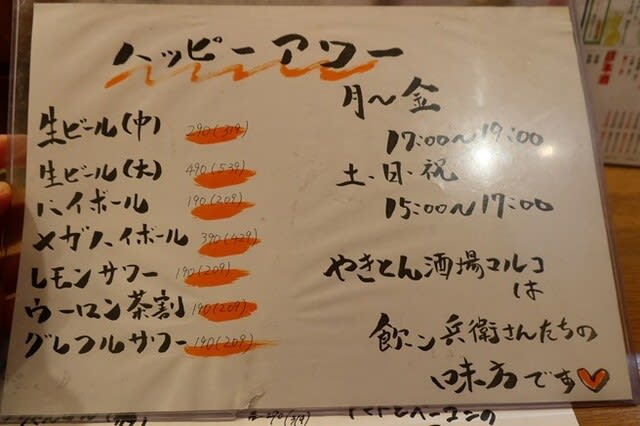 ハッピーアワー
生ビール(中) 290(319)
生ビール(大) 490(539)
ハイボール 190(209)
メガハイボール 390(429)
レモンサワー 190(209)
ウーロン茶割 190(209)
グレフルサワー 190(209)
月〜金
17:00〜19:00
土、日、祝
15:00〜17:00
やきとん酒場マルコ
は
飲ン兵衛さんたちの
味方です
290(319)